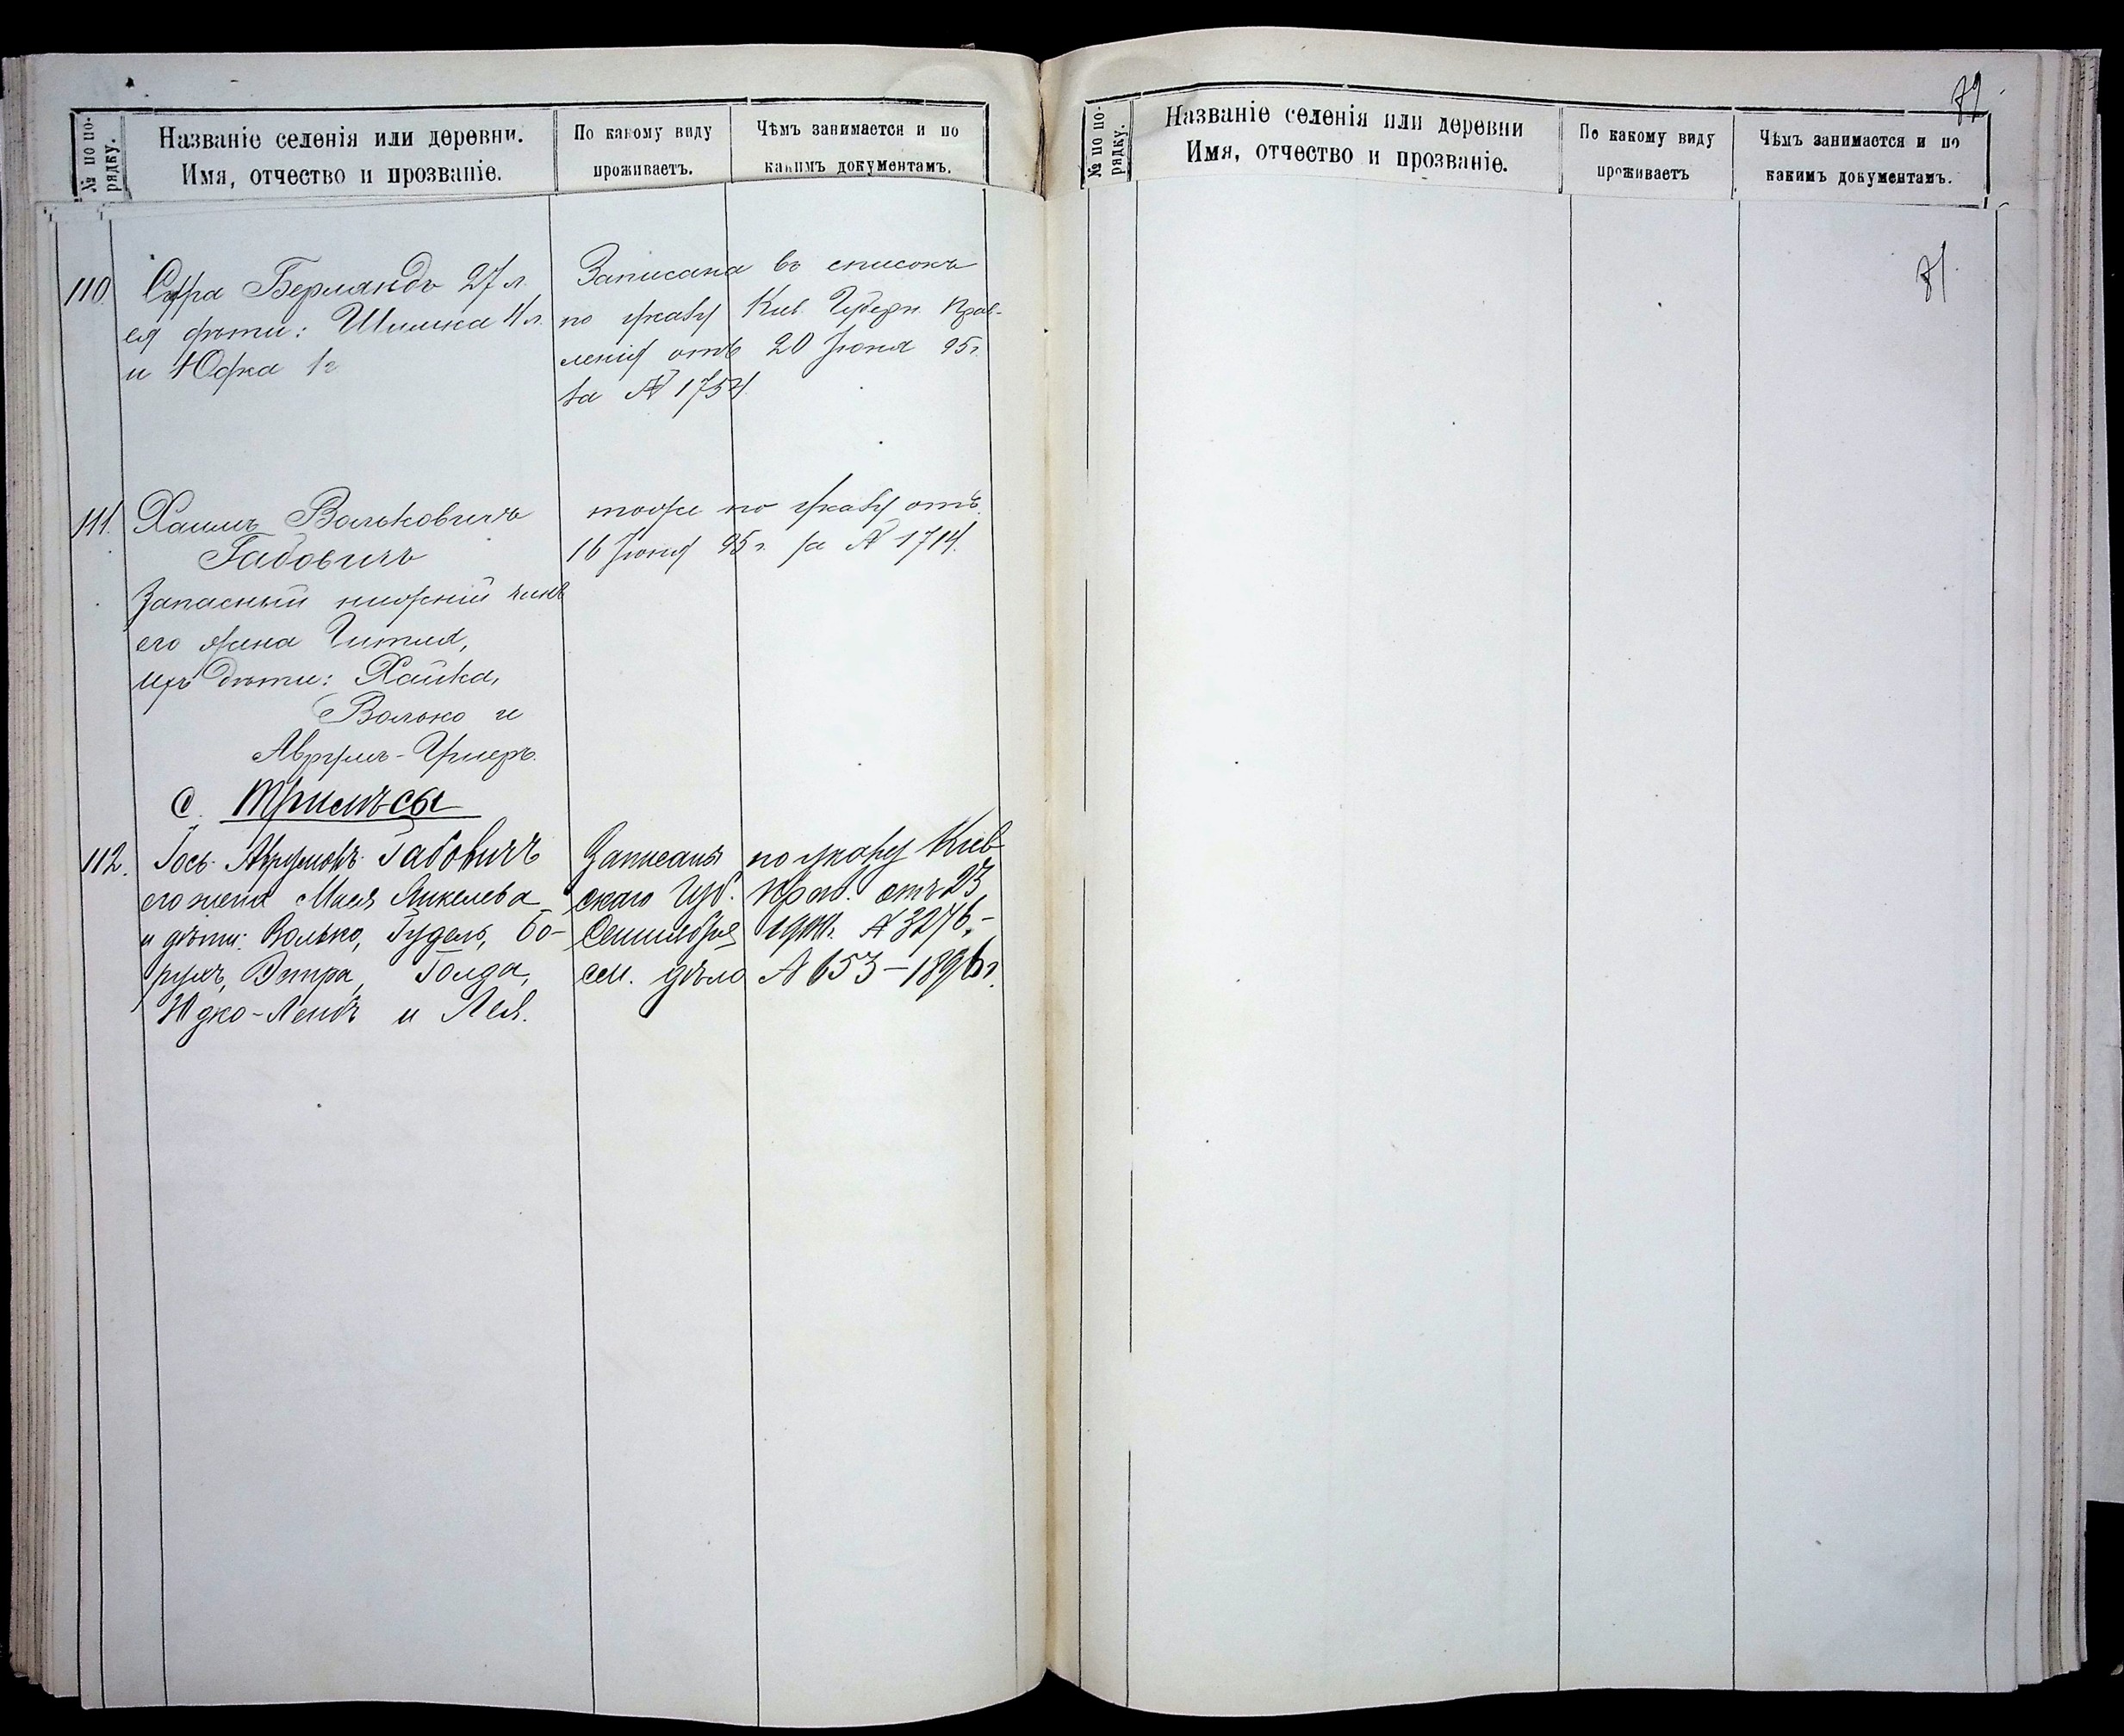 № по по-
рядку.
Названіе селенія или деревни.
Имя, отчество и прозваніе.
По какому виду
проживаетъ.
Чѣмъ занимается и по
какимъ документамъ.
110. Сура Берляндъ 27 л.
ея дѣти: Шимка 4 л.
и Юдка 1 г
Записана въ списокъ
по указу Кіев. Губерн. Прав-
ленія отъ 20 Іюня 95 г.
за № 1754
111. Хаимъ Вольковичъ
Габовичъ
Запасный нижній чинъ
его жена Гитля,
ихъ дѣти: Хайка,
Волько и
Аврумъ-
тоже по указу отъ
16 Іюня 95 г. за № 1714.
с. Трилѣсы
112. Іось Аврумовъ Габовичъ
его жена Янкелева
и дѣти: Волько, Гудель, Бо-
рухъ, Эстра, Голда,
Юдко-Лейбъ и Лея.
Записаны по указу Кіев
скаго Губ. Прав. отъ 23
Сентября № 3276.-
см. дѣло № 653-1896 г.
№ по по-
рядку.
Названіе селенія или деревни
Имя, отчество и прозваніе.
По какому виду
проживаетъ
Чѣмъ занимается и по
какимъ документамъ.